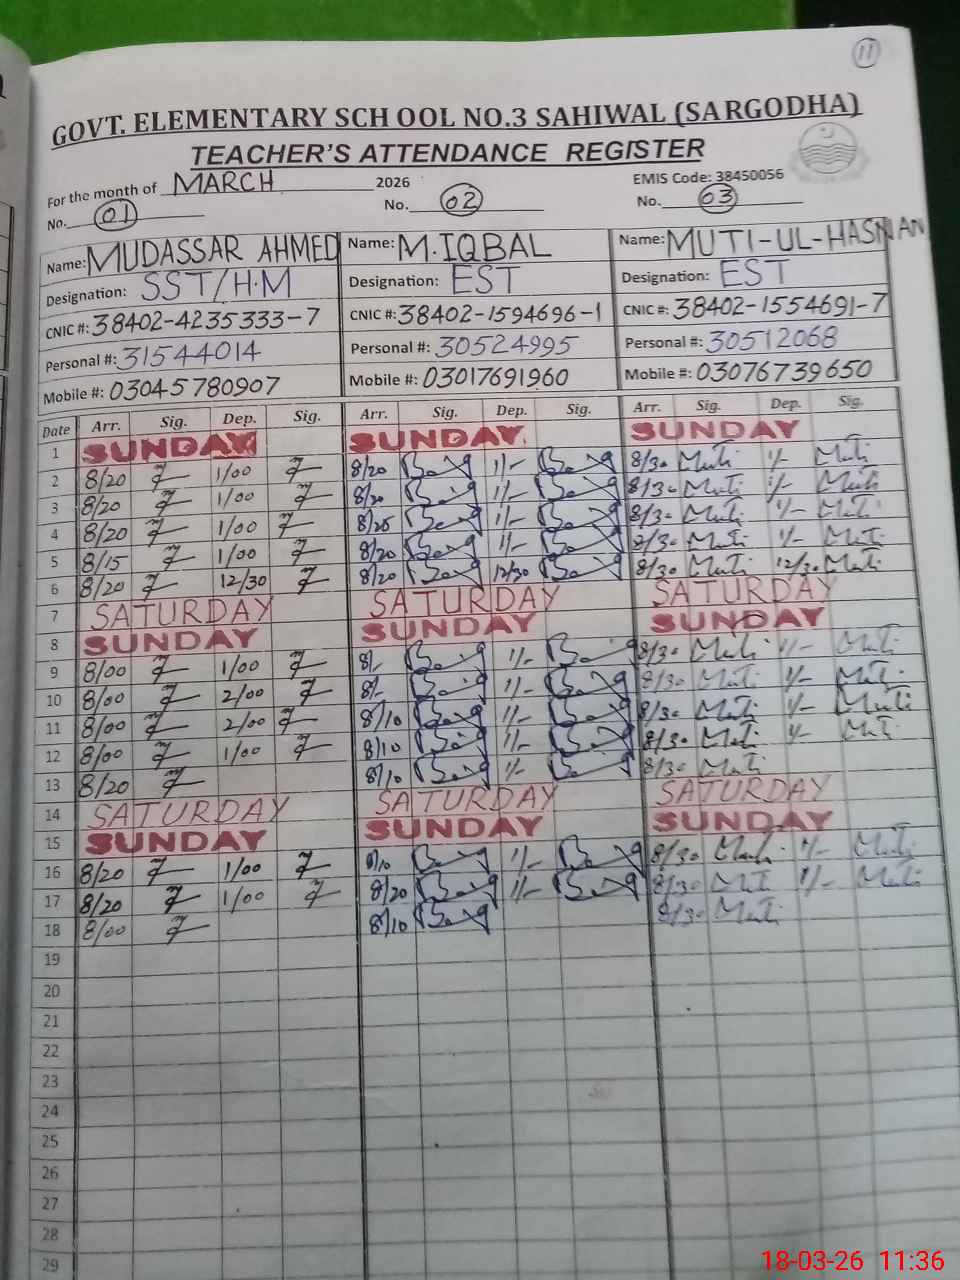 11
GOVT. ELEMENTARY SCH OOL NO.3 SAHIWAL (SARGODHA)
TEACHER'S ATTENDANCE REGISTER
For the month of MARCH 2026 EMIS Code: 38450056
No. 01 No. 02 No. 03
Name: MUDASSAR AHMED Name: M.IQBAL Name: MUTI-UL-HASNAN
Designation: SST/H.M Designation: EST Designation: EST
CNIC #: 38402-4235333-7 CNIC #: 38402-1594696-1 CNIC #: 38402-1554691-7
Personal #: 31544014 Personal #: 30524995 Personal #: 30512068
Mobile #: 03045780907 Mobile #: 03017691960 Mobile #: 03076739650
Date Arr. Sig. Dep. Sig. Arr. Sig. Dep. Sig. Arr. Sig. Dep. Sig.
1 SUNDAY SUNDAY SUNDAY
2 8/20 1/00 8/20 1/- 8/30 Muti 1/- Muti
3 8/20 1/00 8/20 1/- 8/30 Muti 1/- Muti
4 8/20 1/00 8/25 1/- 8/30 Muti 1/- Muti
5 8/15 1/00 8/20 1/- 8/30 Muti 1/- Muti
6 8/20 12/30 8/20 12/30 8/30 Muti 12/30 Muti
7 SATURDAY SATURDAY SATURDAY
8 SUNDAY SUNDAY SUNDAY
9 8/00 1/00 8/- 1/- 8/30 Muti 1/- Muti
10 8/00 2/00 8/- 1/- 8/30 Muti 1/- Muti
11 8/00 2/00 8/10 1/- 8/30 Muti 1/- Muti
12 8/00 1/00 8/10 1/- 8/30 Muti 1/- Muti
13 8/20 8/10 1/- 8/30 Muti
14 SATURDAY SATURDAY SATURDAY
15 SUNDAY SUNDAY SUNDAY
16 8/20 1/00 8/10 1/- 8/30 Muti 1/- Muti
17 8/20 1/00 8/20 1/- 8/30 Muti 1/- Muti
18 8/00 8/10 8/30 Muti
19
20
21
22
23
24
25
26
27
28
29
18-03-26 11:36